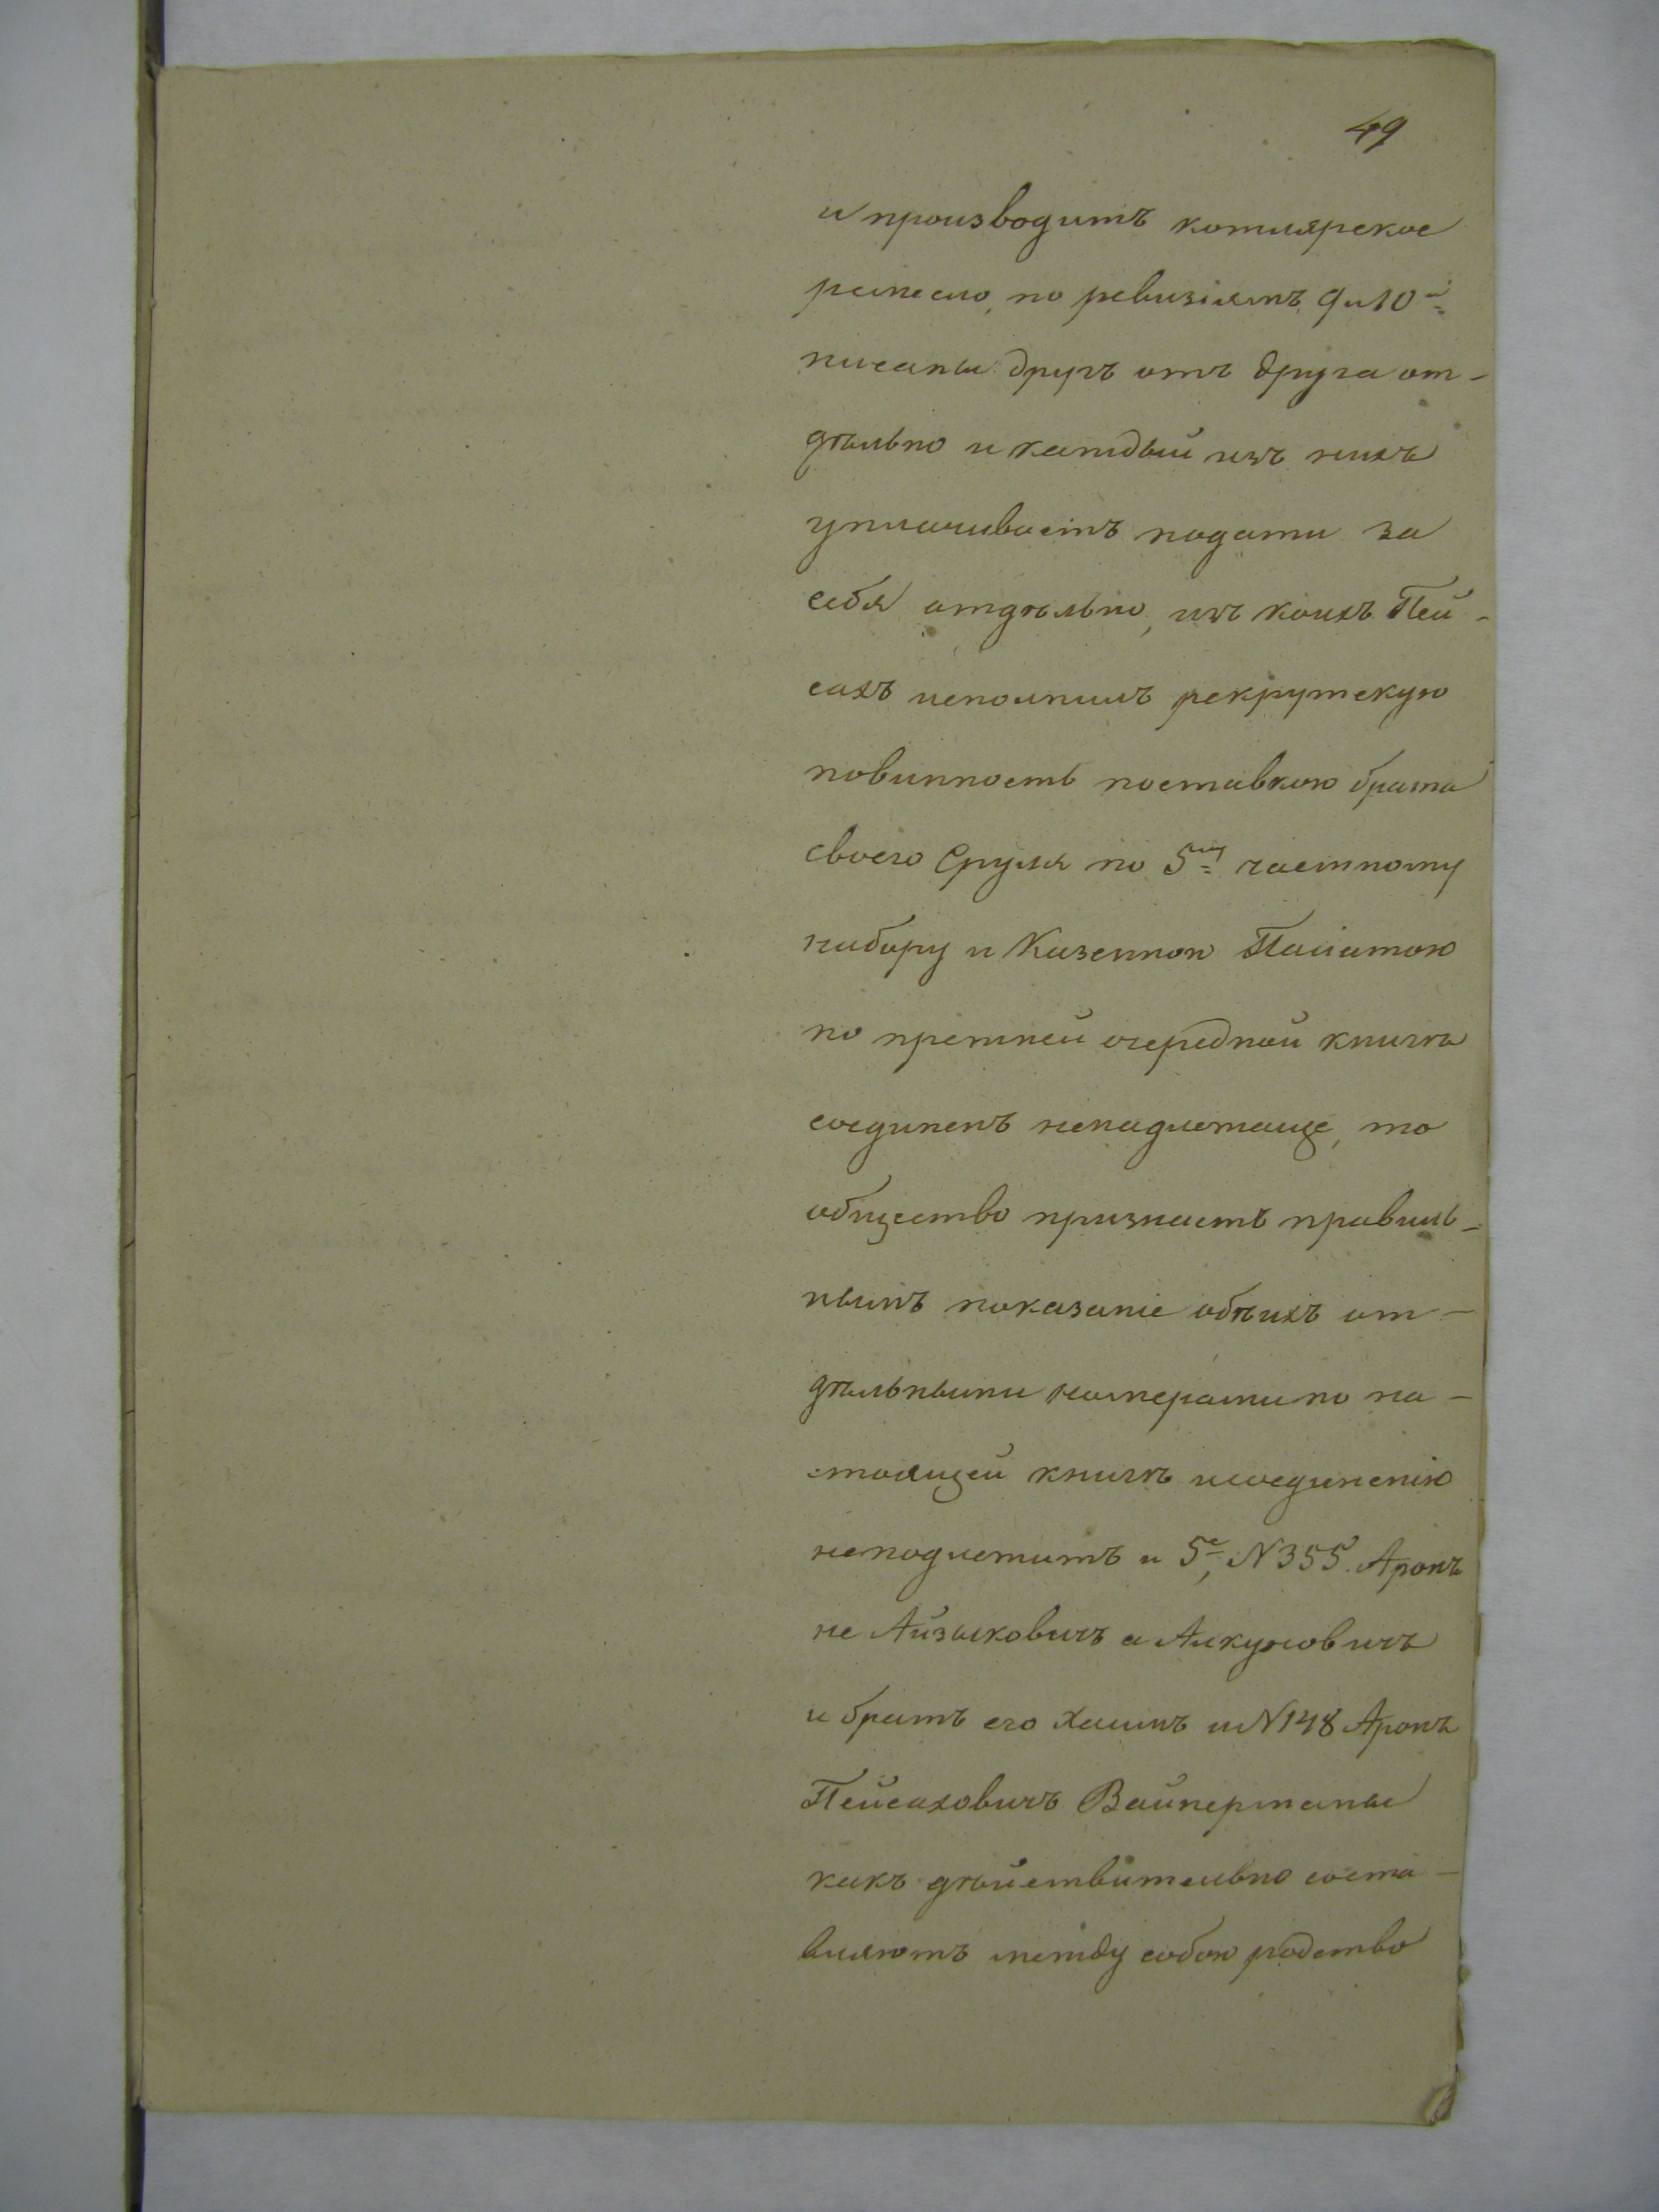 49
и производитъ котлярское
ремесло, по ревизіямъ 9 и 10й
писаны другъ отъ друга от-
дѣльно и каждый изъ нихъ
уплачиваетъ подати за
себя отдѣльно, изъ коихъ Пей-
сахъ исполнилъ рекрутскую
повинность поставкою брата
своего Сруля по 5му частному
набору и Казенною Палатою
по прежней очередной книгѣ
соединенъ ненадлежаще, то
общество признаетъ правиль-
нымъ показаніе обѣихъ от-
дѣльными номерами по на-
стоящей книгѣ и соединенію
неподлежитъ и 5е, N 355. Аронъ
не Айзыковичъ а Анкуновичъ
и братъ его Хаимъ и N 148 Аронъ
Пейсаховичъ Вайнерманы
какъ дѣйствительно соста-
вляютъ между собою родство